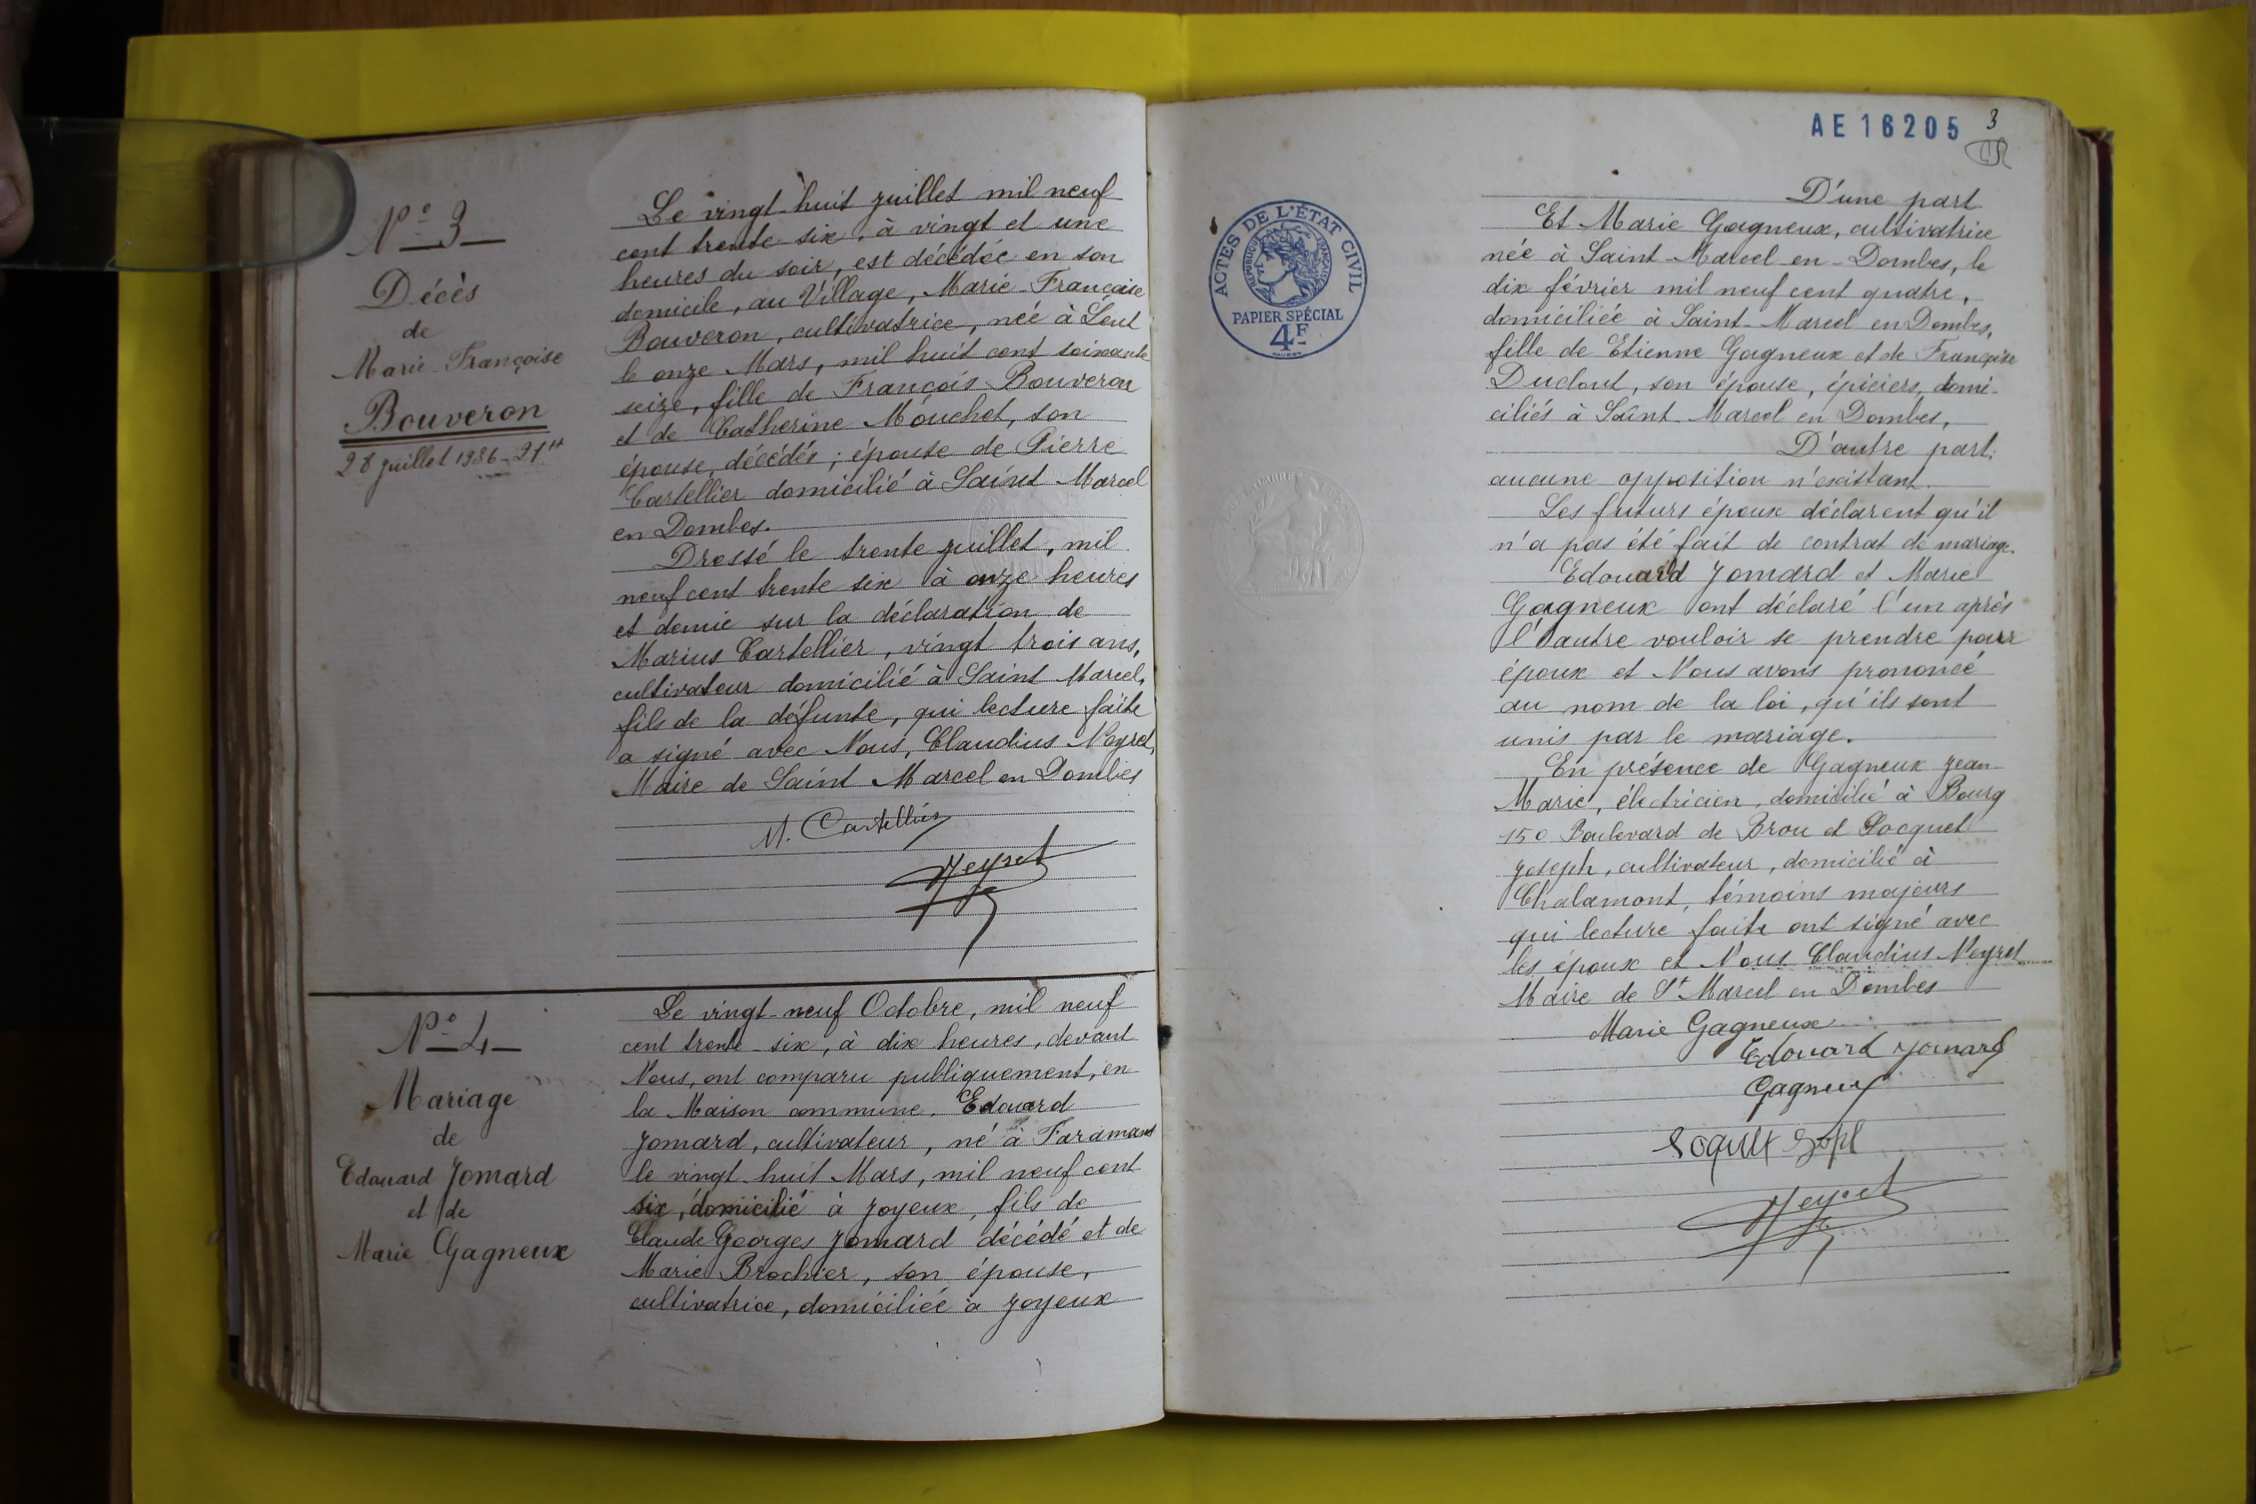 N° 3
Décès
de
Marie-Françoise
Bouveron
28 juillet 1936-21H
Le vingt-huit juillet mil neuf
cent trente six, à vingt et une
heures du soir, est décédée en son
domicile, au Village, Marie-Française
Bouveron, cultivatrice, née à Lent
le onze Mars, mil huit cent soixante
seize, fille de François Bouveron
et de Catherine Mouchet, son
épouse, décédés; épouse de Pierre
Cartellier domicilié à Saint Marcel
en Dombes.
Dressé le trente juillet, mil
neuf cent trente six à onze heures
et demie sur la déclaration de
Marius Cartellier, vingt trois ans,
cultivateur domicilié à Saint Marcel,
fils de la défunte, qui lecture faite
a signé avec Nous, Claudius Neyret,
Maire de Saint Marcel en Dombes
M. Cartellier
Neyret
N° 4
Mariage
de
Edouard Jomard
et de
Marie Gagneux
Le vingt-neuf Octobre, mil neuf
cent trente-six, à dix heures, devant
Nous, ont comparu publiquement, en
la Maison commune. Edouard
Jomard, cultivateur, né à Faramans
le vingt-huit Mars, mil neuf cent
six, domicilié à Joyeux, fils de
Claude Georges Jomard décédé et de
Marie Brochier, son épouse,
cultivatrice, domiciliée à Joyeux
AE 16205
3
ACTES DE L'ÉTAT CIVIL
RÉPUBLIQUE FRANÇAISE
PAPIER SPÉCIAL
4F
D'une part
Et Marie Gagneux, cultivatrice
née à Saint-Marcel-en-Dombes, le
dix février mil neuf cent quatre,
domiciliée à Saint-Marcel en Dombes,
fille de Etienne Gagneux et de Françoise
Duclout, son épouse, épiciers, domi-
ciliés à Saint-Marcel en Dombes,
D'autre part:
aucune opposition n'existant.
Les futurs époux déclarent qu'il
n'a pas été fait de contrat de mariage.
Edouard Jomard et Marie
Gagneux ont déclaré l'un après
l'autre vouloir se prendre pour
époux et Nous avons prononcé
au nom de la loi, qu'ils sont
unis par le mariage.
En présence de Gagneux Jean-
Marie, électricien, domicilié à Bourg
150 Boulevard de Brou et Locquet
Joseph, cultivateur, domicilié à
Chalamont, témoins majeurs
qui lecture faite ont signé avec
les époux et Nous Claudius Neyret
Maire de St Marcel en Dombes
Marie Gagneux
Edouard Jomard
Gagneux
Neyret